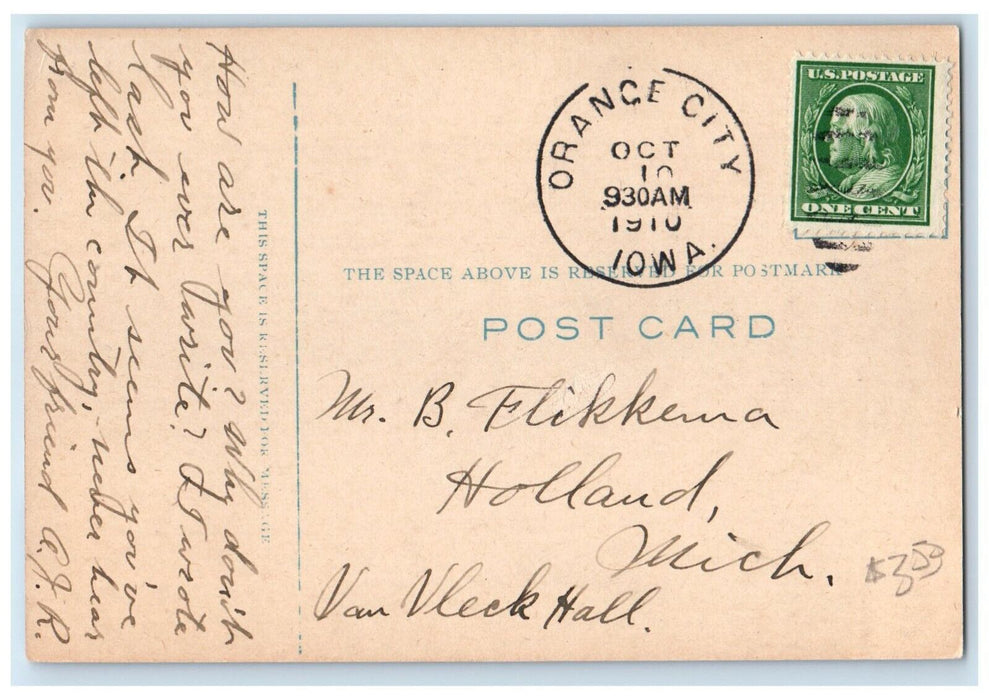 How are you? Why don't
you ever write? I wrote
last. It seems you've
left the country, never hear
from you.
Your friend A.J.R.
THIS SPACE IS RESERVED FOR MESSAGE
ORANGE CITY
OCT
10
930AM
1910
IOWA.
U.S.POSTAGE
ONE CENT
THE SPACE ABOVE IS RESERVED FOR POSTMARK
POST CARD
Mr. B. Flikkema
Holland,
Mich.
Van Vleck Hall.